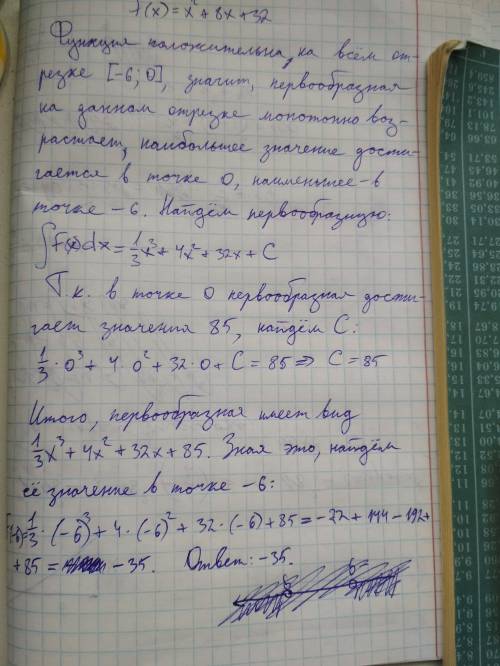 f(x) = x² + 8x + 32
Функция положительна на всём от-
резке [-6; 0], значит, первообразная
на данном отрезке монотонно воз-
растает, наибольшее значение дости-
гается в точке 0, наименьшее - в
точке -6. Найдём первообразную:
∫f(x)dx = 1/3x³ + 4x² + 32x + C
Т.к. в точке 0 первообразная дости-
гает значения 85, найдём C:
1/3 · 0³ + 4 · 0² + 32 · 0 + C = 85 => C = 85
Итого, первообразная имеет вид
1/3x³ + 4x² + 32x + 85. Зная это, найдём
её значение в точке -6:
F(-6) = 1/3 · (-6)³ + 4 · (-6)² + 32 · (-6) + 85 = -72 + 144 - 192 +
+ 85 = -35. Ответ: -35.